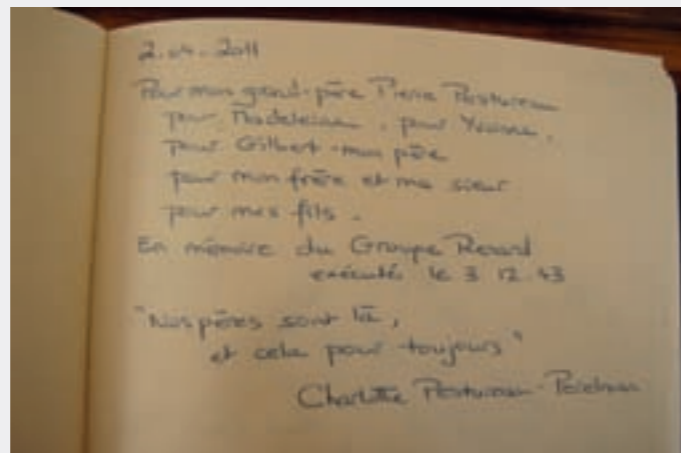 2-04-2011
Pour mon grand-père Pierre
pour Madeleine, pour Yvonne,
pour Gilbert mon père
pour mon frère et ma sœur
pour mes fils.
En mémoire du Groupe Renard
exécuté le 3 12 43
"Nos pères sont là,
et cela pour toujours"
Charlotte